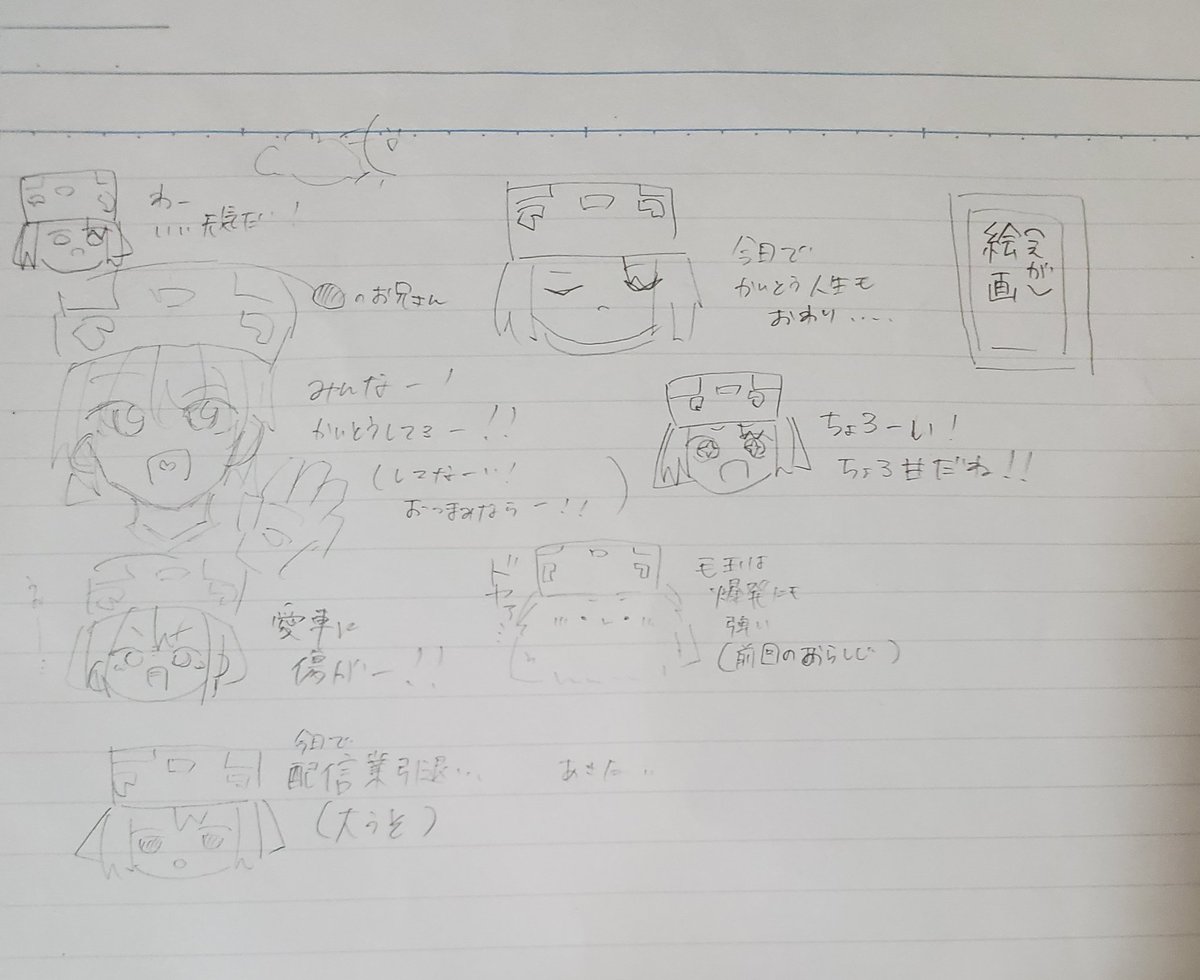 わー
いい天気だ!
のお兄さん
みんなー!
かいとうしてるー!!
(してなーい!
おつまみならー!!)
愛車に
傷がー!!
今日で
配信業引退...
(大うそ)
あきた..
今日で
かいとう人生も
おわり.....
絵画
(えがい
ちょろーい!
ちょろ甘だね!!
ドヤァ...
毛玉は
爆発にも
強い
(前回のあらしじ)